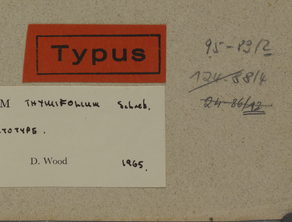 Typus
95-83/2
124-88/4
24-86/92
M THYMIFOLIUM Schreb.
OTOTYPE.
D. Wood 1965.